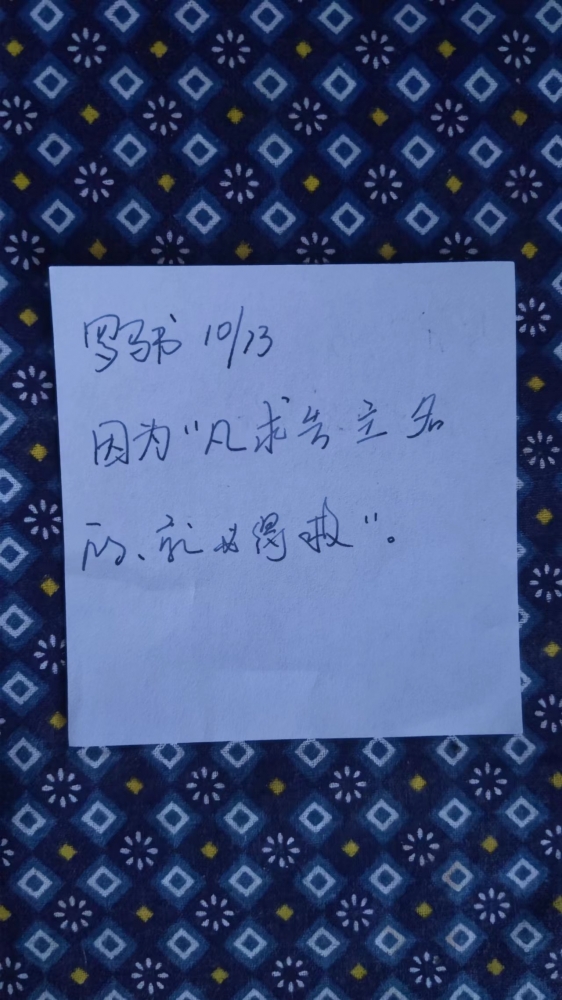 罗马书 10/13
因为"凡求告主名
的、就必得救"。